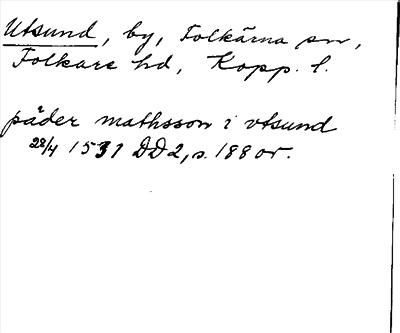 Utsund, by, Folkärna sn,
Folkare hd, Kopp. l.
päder mathsson i vtsund
22/4 1531 DD2, s. 188 or.